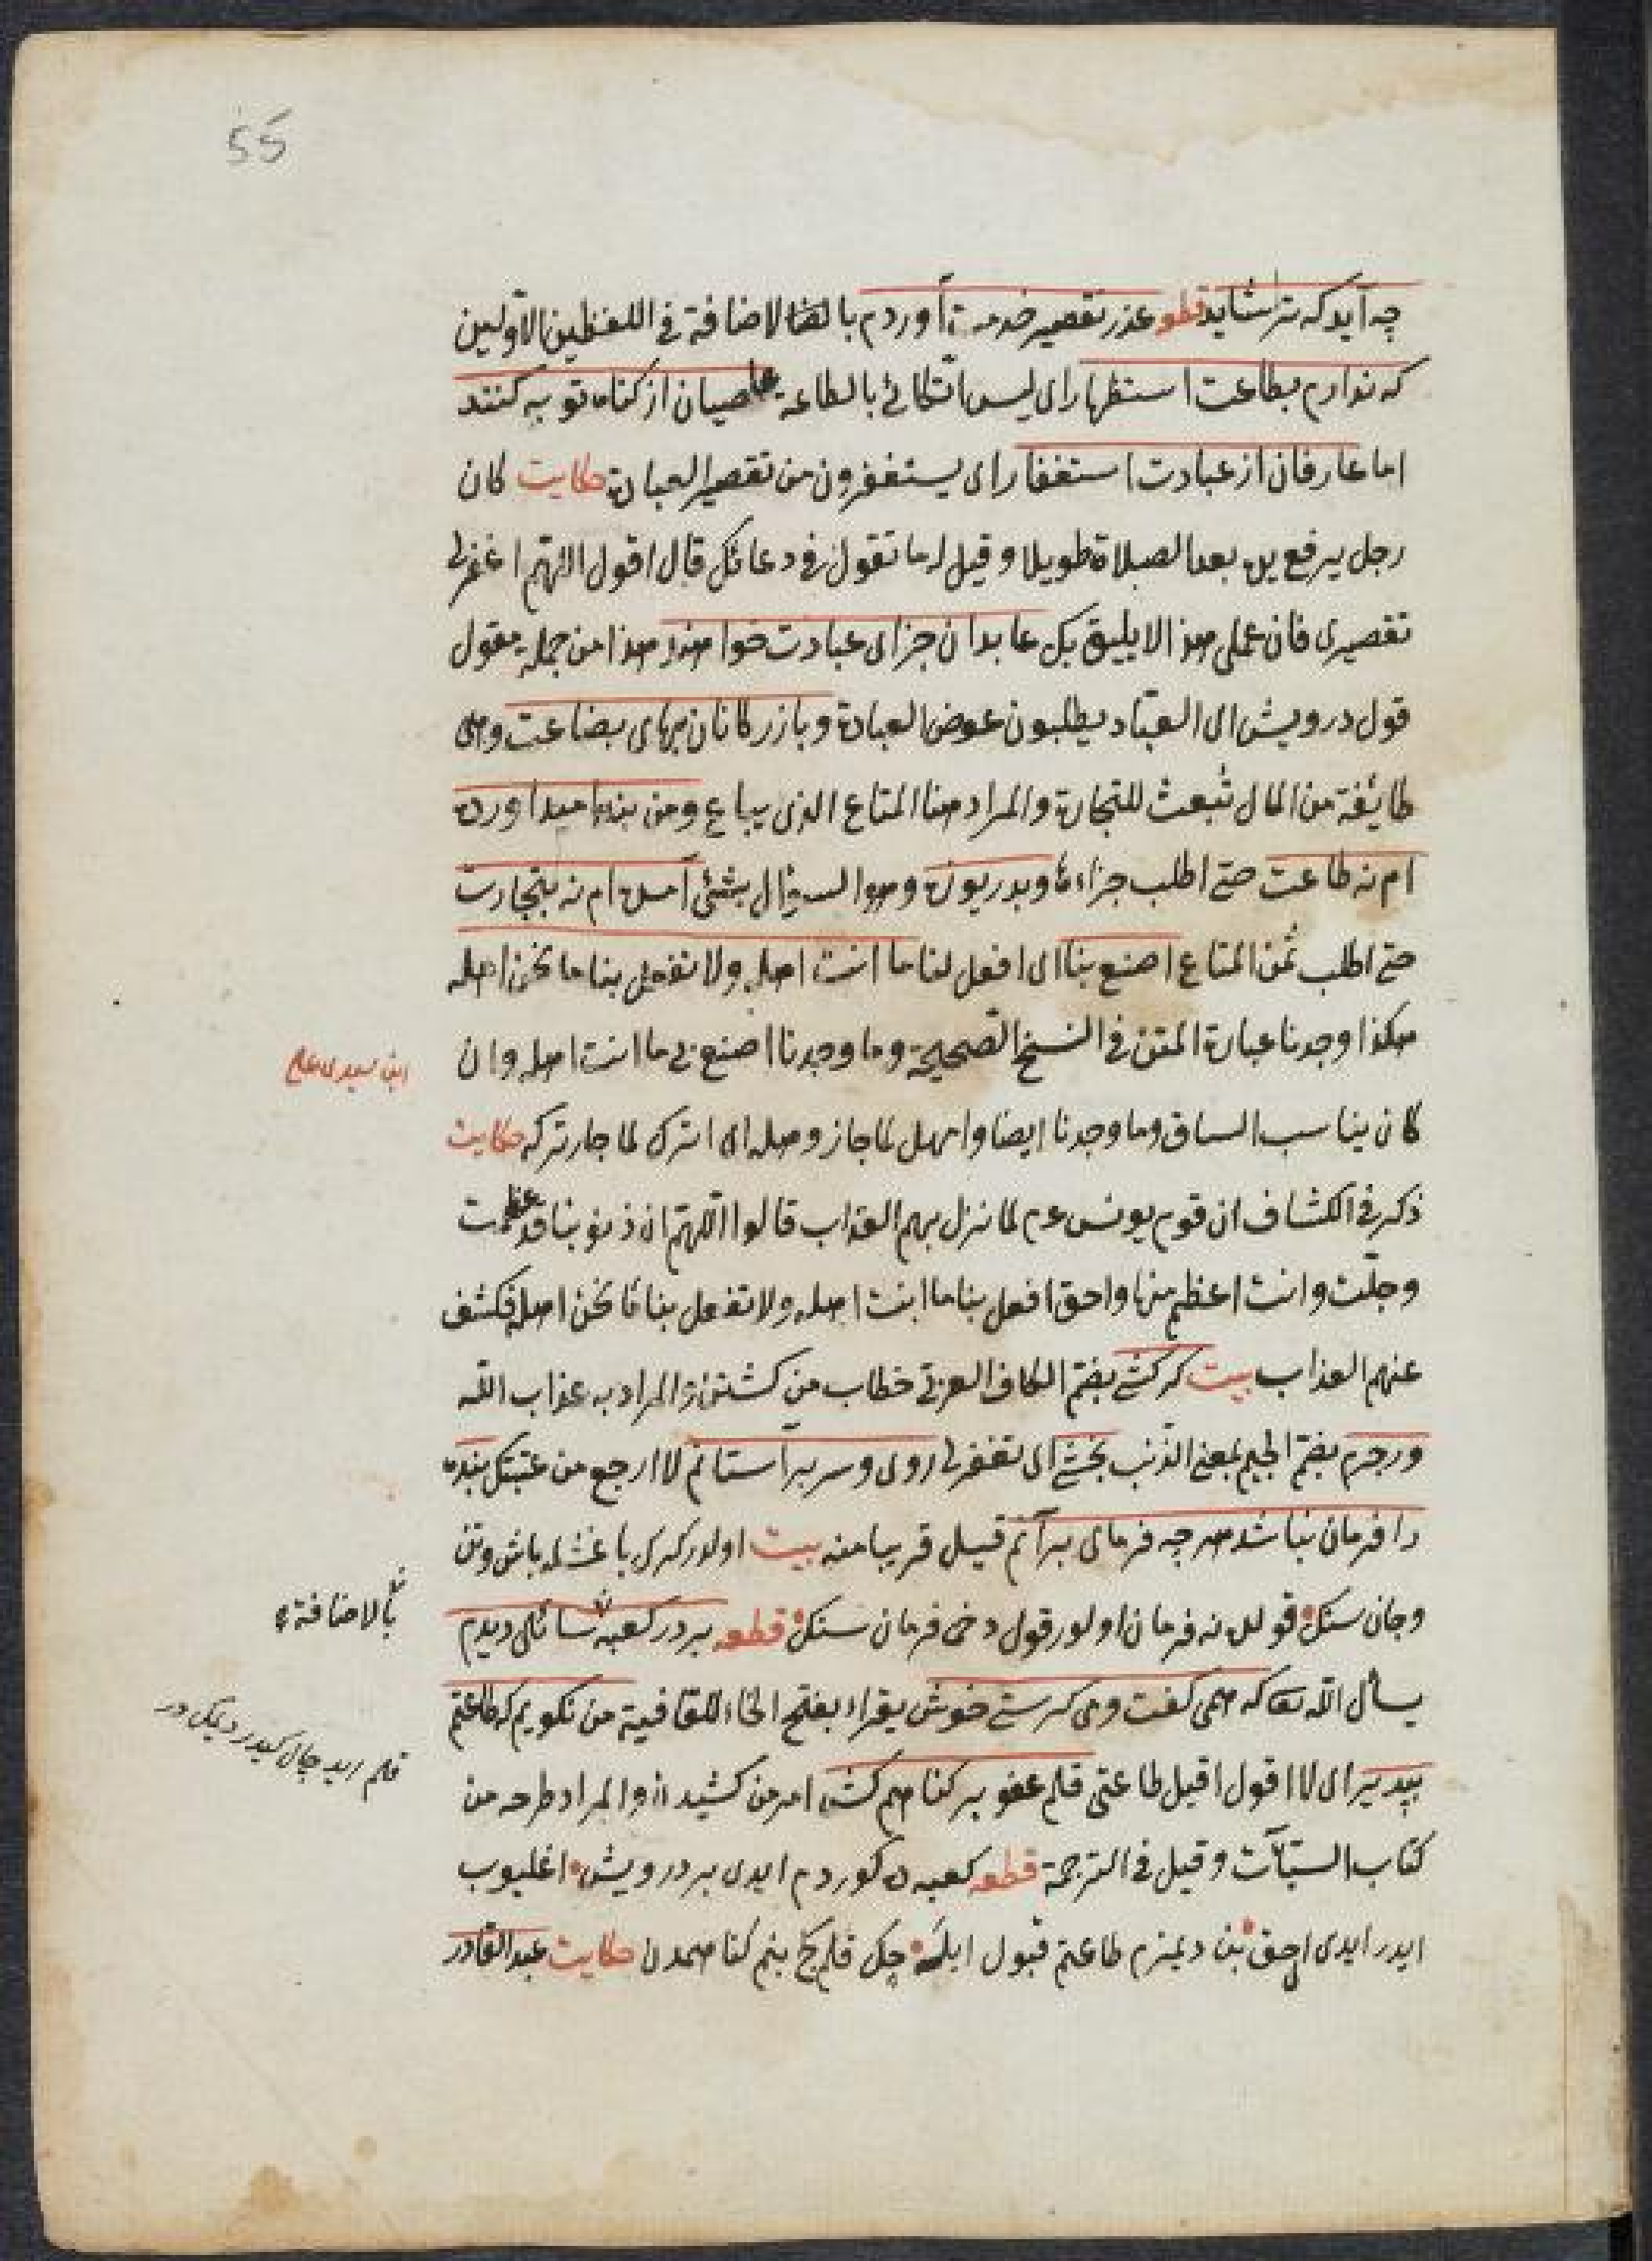 55
چه آید که ترا شاید قطعه عذر تقصیر خدمت آوردم بالاضافة فی اللفظین الاولین
که ندارم بطاعت استظهار ای لیس اتکائی بالطاعة عاصیان از کناه توبه کنند
اما عارفان از عبادت استغفار ای یستغفرون من تقصیر العبادة حکایت کان
رجل یرفع یده بعد الصلاة طویلا و قیل له ما تقول فی دعائک قال اقول اللهم اغفر لی
تقصیری فان عملی هذا لا یلیق بک عابدان جزای عبادت خواهند هذا من جملة مقول
قول درویش ای العبّاد یطلبون عوض العبادة و بازرکانان بهای بضاعت وهی
طایفة من المال تبعث للتجارة والمراد هنا المتاع الذی یباع و من بنده امید آورده
ام نه طاعت حتی اطلب جزاءه و بدریوزه وهو السؤال بشئ آمده ام نه بتجارت
حتی اطلب ثمن المتاع اصنع بنا ای افعل لنا ما انت اهله ولا تفعل بنا ما نحن اهله
هکذا وجدنا عبارة المتن فی النسخ الصحیحة وما وجدنا اصنع بی ما انت اهله وان
ابن سیدی علی
کان یناسب السباق وما وجدنا ایضا وامهل لما جاز وهله ای اترک لما جاز ترکه حکایت
ذکر فی الکشاف ان قوم یونس عم لما نزل بهم العذاب قالوا اللهم ان ذنوبنا قد عظمت
وجلّت وانت اعظم منها واحق افعل بنا ما انت اهله ولا تفعل بنا ما نحن اهله فکشف
عنهم العذاب بیت کر کشی بضم الکاف العربی خطاب من کشتن والمراد به عذاب الله
ور جرم بضم الجیم بمعنی الذنب بخشی ای تغفر لی روی و سر بر آستانم لا ارجع من عتبتک بنده
را فرمان نباشد هر چه فرمای برآنم قیل قریبا منه بیت اولدر کرک باغشله باش و تن
و جان سنک قوللره نه فرمان اولور قول دخی فرمان سنک قطعه بر در کعبه سائلی دیدم
بالاضافة
یسأل الله تعا که همی کفت و می کرستی خوش یقراء بفتح الخاء للقافیة من نکویم که طاعتم
بپذیر ای لا اقول اقبل طاعتی قلم عفو بر کناهم کش امر من کشیدن والمراد طرحه من
کتاب السیّآت وقیل فی الترجمة قطعه کعبه ده کوردم ایدی بر درویش اغلیوب
ایدر ایدی اجق بن دیمزم طاعتم قبول ایله چک قلم بنم کناهمدن حکایت عبد القادر